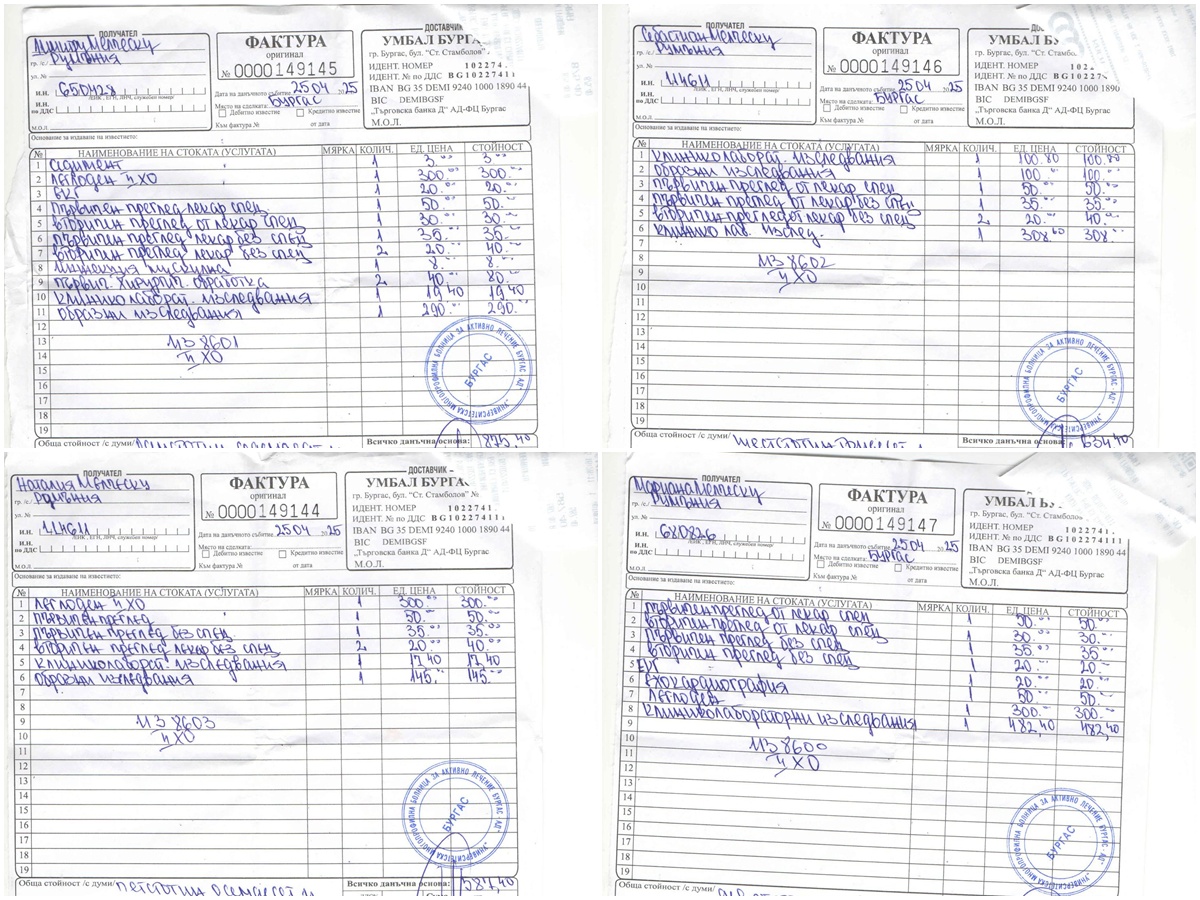 ПОЛУЧАТЕЛ
Румъния
гр./с./
ул. №
И.Н. 650428
ЛНК, ЕГН, ЛНЧ, служебен номер/
по ДДС
М.О.Л.
ФАКТУРА
оригинал
№ 0000149145
Дата на данъчното събитие 25 04 2025
Място на сделката: Бургас
Дебитно известие Кредитно известие
Към фактура № от дата
ДОСТАВЧИК
УМБАЛ БУРГАС
гр. Бургас, бул. "Ст. Стамболов"
ИДЕНТ. НОМЕР 102274
ИДЕНТ. № по ДДС BG10227411
IBAN BG 35 DEMI 9240 1000 1890 44
BIC DEMIBGSF
„Търговска банка Д“ АД-ФЦ Бургас
М.О.Л.
Основание за издаване на известието:
№ НАИМЕНОВАНИЕ НА СТОКАТА (УСЛУГАТА) МЯРКА КОЛИЧ. ЕД. ЦЕНА СТОЙНОСТ
1 Седимент 1 3.00 3.00
2 Леглоден ЧХО 1 300.00 300.00
3 ЕКГ 1 20.00 20.00
4 Първичен преглед лекар спец. 1 50.00 50.00
5 Вторичен преглед от лекар спец 1 30.00 30.00
6 Първичен преглед лекар без спец 1 35.00 35.00
7 Вторичен преглед лекар без спец 2 20.00 40.00
8 Инжекция мускулна 1 8.00 8.00
9 Първич. хирургич. обработка 2 40.00 80.00
10 Клиниколаборат. изследвания 1 19,40 19,40
11 Образни изследвания 1 290.00 290.00
12
13 ИЗ 8601
14 ЧХО
15
16
17
18
19
"УНИВЕРСИТЕТСКА МНОГОПРОФИЛНА БОЛНИЦА ЗА АКТИВНО ЛЕЧЕНИЕ БУРГАС АД"
БУРГАС
Обща стойност /с думи/ Всичко данъчна основа: 875,40
ПОЛУЧАТЕЛ
Себастиан
Румъния
гр./с./
ул. №
И.Н. 114611
ЛНК, ЕГН, ЛНЧ, служебен номер/
по ДДС
М.О.Л.
ФАКТУРА
оригинал
№ 0000149146
Дата на данъчното събитие 25 04 2025
Място на сделката: Бургас
Дебитно известие Кредитно известие
Към фактура № от дата
УМБАЛ
гр. Бургас, бул. "Ст. Стамбо
ИДЕНТ. НОМЕР 102
ИДЕНТ. № по ДДС BG10227
IBAN BG 35 DEMI 9240 1000 1890 44
BIC DEMIBGSF
„Търговска банка Д“ АД-ФЦ Бургас
М.О.Л.
Основание за издаване на известието:
№ НАИМЕНОВАНИЕ НА СТОКАТА (УСЛУГАТА) МЯРКА КОЛИЧ. ЕД. ЦЕНА СТОЙНОСТ
1 Клиниколаборат. изследвания 1 100.80 100.80
2 Образни изследвания 1 100.00 100.00
3 Първичен преглед от лекар спец 1 50.00 50.00
4 Първичен преглед от лекар без спец 1 35.00 35.00
5 Вторичен преглед от лекар без спец 2 20.00 40.00
6 Клинико лаб. изслед. 1 308.60 308.
7
8 ИЗ 8602
9 ЧХО
10
11
12
13
14
15
16
17
18
19
"УНИВЕРСИТЕТСКА МНОГОПРОФИЛНА БОЛНИЦА ЗА АКТИВНО ЛЕЧЕНИЕ БУРГАС АД"
БУРГАС
Обща стойност /с думи/ Всичко данъчна основа: 634,40
ПОЛУЧАТЕЛ
Наталия
Румъния
гр./с./
ул. №
И.Н. 114611
ЛНК, ЕГН, ЛНЧ, служебен номер/
по ДДС
М.О.Л.
ФАКТУРА
оригинал
№ 0000149144
Дата на данъчното събитие 25 04 2025
Място на сделката:
Дебитно известие Кредитно известие
Към фактура № от дата
ДОСТАВЧИК
УМБАЛ БУРГА
гр. Бургас, бул. "Ст. Стамболов" №
ИДЕНТ. НОМЕР 1022741
ИДЕНТ. № по ДДС BG10227411
IBAN BG 35 DEMI 9240 1000 1890 44
BIC DEMIBGSF
„Търговска банка Д“ АД-ФЦ Бургас
М.О.Л.
Основание за издаване на известието:
№ НАИМЕНОВАНИЕ НА СТОКАТА (УСЛУГАТА) МЯРКА КОЛИЧ. ЕД. ЦЕНА СТОЙНОСТ
1 Леглоден ЧХО 1 300.00 300.00
2 Първичен преглед 1 50.00 50.00
3 Първичен преглед без спец 1 35.00 35.00
4 Вторичен преглед лекар без спец 2 20.00 40.00
5 Клиниколаборат. изследвания 1 17,40 17,40
6 Образни изследвания 1 145.00 145.00
7
8
9 ИЗ 8603
10 ЧХО
11
12
13
14
15
16
17
18
19
"УНИВЕРСИТЕТСКА МНОГОПРОФИЛНА БОЛНИЦА ЗА АКТИВНО ЛЕЧЕНИЕ БУРГАС АД"
БУРГАС
Обща стойност /с думи/ Петстотин осемдесет и Всичко данъчна основа: 587,40
ПОЛУЧАТЕЛ
Мариана
Румъния
гр./с./
ул. №
И.Н. 680826
ЛНК, ЕГН, ЛНЧ, служебен номер/
по ДДС
М.О.Л.
ФАКТУРА
оригинал
№ 0000149147
Дата на данъчното събитие 25 04 2025
Място на сделката: Бургас
Дебитно известие Кредитно известие
Към фактура № от дата
УМБАЛ
гр. Бургас, бул. "Ст. Стамб
ИДЕНТ. НОМЕР 102241
ИДЕНТ. № по ДДС BG1022741
IBAN BG 35 DEMI 9240 1000 1890 44
BIC DEMIBGSF
„Търговска банка Д“ АД-ФЦ Бургас
М.О.Л.
Основание за издаване на известието:
№ НАИМЕНОВАНИЕ НА СТОКАТА (УСЛУГАТА) МЯРКА КОЛИЧ. ЕД. ЦЕНА СТОЙНОСТ
1 Първичен преглед от лекар спец 1 50.00 50.
2 Вторичен преглед от лекар спец 1 30.00 30.
3 Първичен преглед без спец 1 35.00 35.
4 Вторичен преглед без спец 1 20.00 20.
5 ЕКГ 1 20.00 20.
6 Ехокардиография 1 50.00 50.
7 Леглоден 1 300.00 300.
8 Клиниколабораторни изследвания 1 482,40 482,40
9
10 ИЗ 8600
11 ЧХО
12
13
14
15
16
17
18
19
"УНИВЕРСИТЕТСКА МНОГОПРОФИЛНА БОЛНИЦА ЗА АКТИВНО ЛЕЧЕНИЕ БУРГАС АД"
БУРГАС
Обща стойност /с думи/ Всичко данъчна основа: